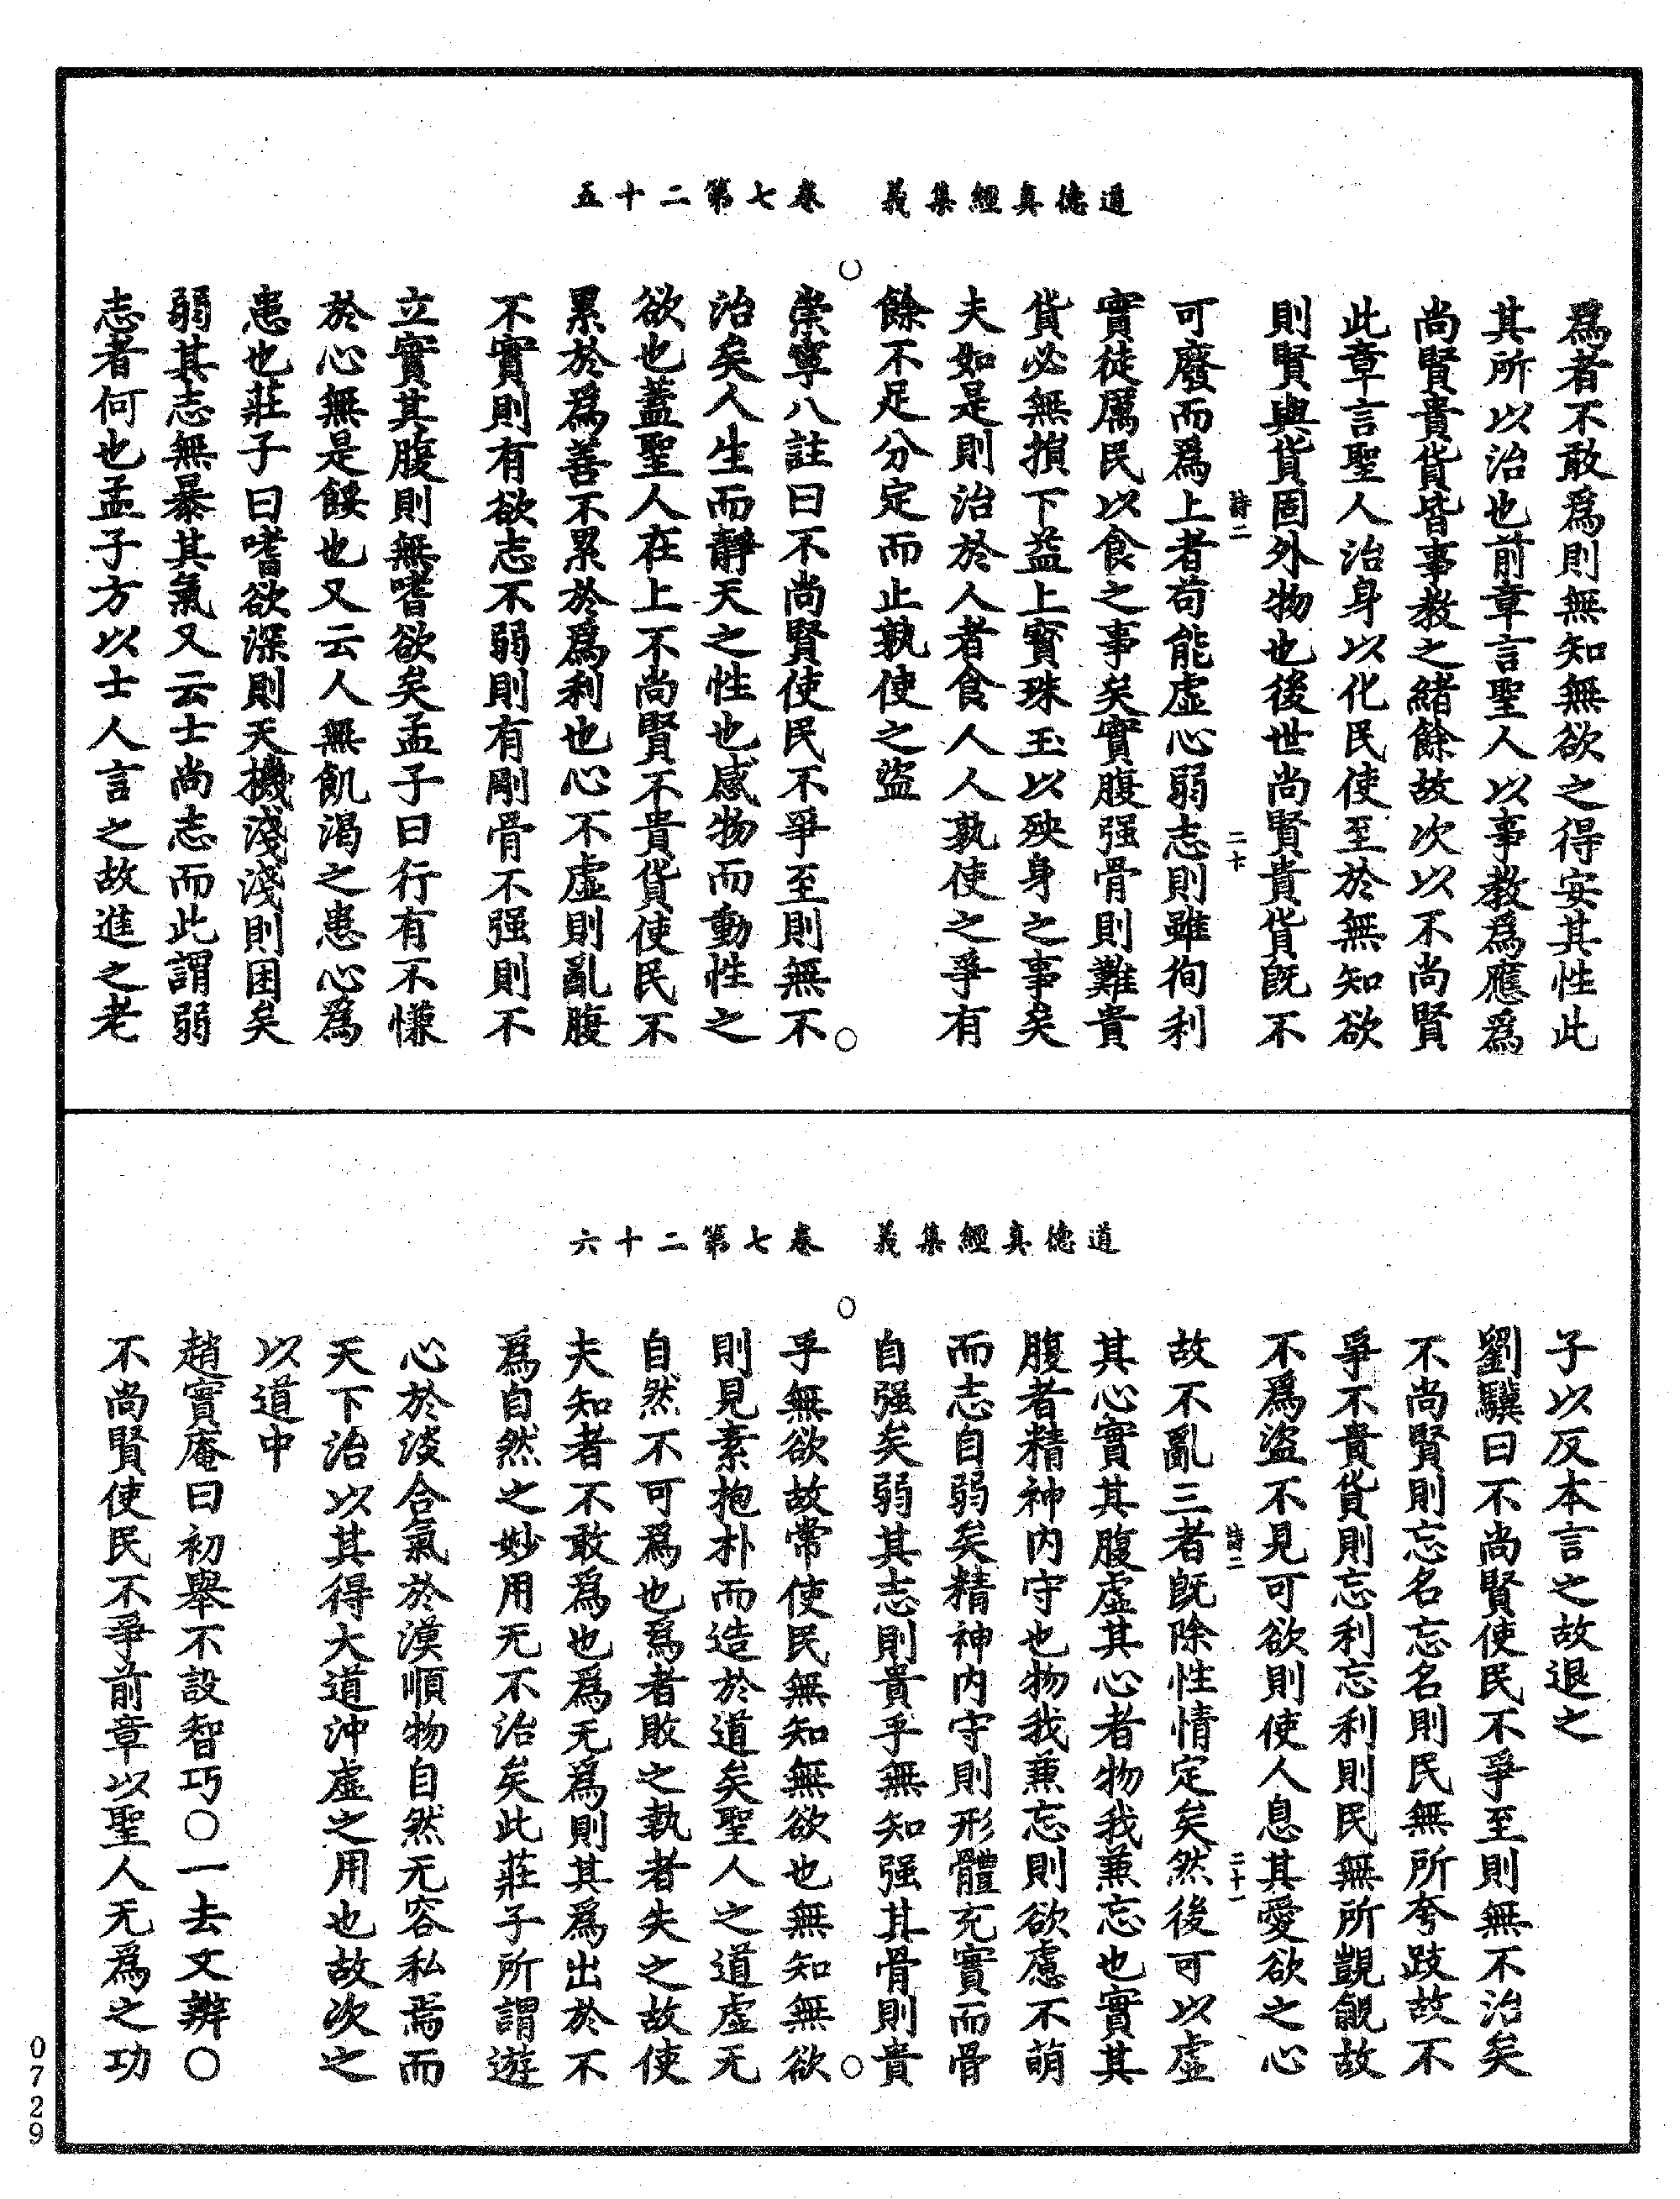 道德真經集義　卷七第二十五
爲者不敢爲則無知無欲之得安其性此
其所以治也前章言聖人以事教爲應爲
尚賢貴貨皆事教之緒餘故次以不尚賢
此章言聖人治身以化民使至於無知欲
則賢與貨固外物也後世尚賢貴貨既不
詩二　二十
可廢而爲上者苟能虛心弱志則雖徇利
實徒厲民以食之事矣實腹强骨則難貴
貨必無損下益上寳珠玉以殃身之事矣
夫如是則治於人者食人人孰使之爭有
餘不足分定而止孰使之盜
崇寧八註曰不尚賢使民不爭至則無不
治矣人生而靜天之性也感物而動性之
欲也蓋聖人在上不尚賢不貴貨使民不
累於爲善不累於爲利也心不虛則亂腹
不實則有欲志不弱則有剛骨不强則不
立實其腹則無嗜欲矣孟子曰行有不慊
於心無是餒也又云人無飢渴之患心爲
患也莊子曰嗜欲深則天機淺淺則困矣
弱其志無暴其氣又云士尚志而此謂弱
志者何也孟子方以士人言之故進之老
道德真經集義　卷七第二十六
子以反本言之故退之
劉驥曰不尚賢使民不爭至則無不治矣
不尚賢則忘名忘名則民無所夸跂故不
爭不貴貨則忘利忘利則民無所覬覦故
不爲盜不見可欲則使人息其愛欲之心
詩二　二十一
故不亂三者既除性情定矣然後可以虛
其心實其腹虛其心者物我兼忘也實其
腹者精神内守也物我兼忘則欲慮不萌
而志自弱矣精神内守則形體充實而骨
自强矣弱其志則貴乎無知强其骨則貴
乎無欲故常使民無知無欲也無知無欲
則見素抱朴而造於道矣聖人之道虛无
自然不可爲也爲者敗之執者失之故使
夫知者不敢爲也爲无爲則其爲出於不
爲自然之妙用无不治矣此莊子所謂遊
心於淡合氣於漠順物自然无容私焉而
天下治以其得大道沖虛之用也故次之
以道中
趙實庵曰初舉不設智巧○一去文辨○
不尚賢使民不爭前章以聖人无爲之功
0729